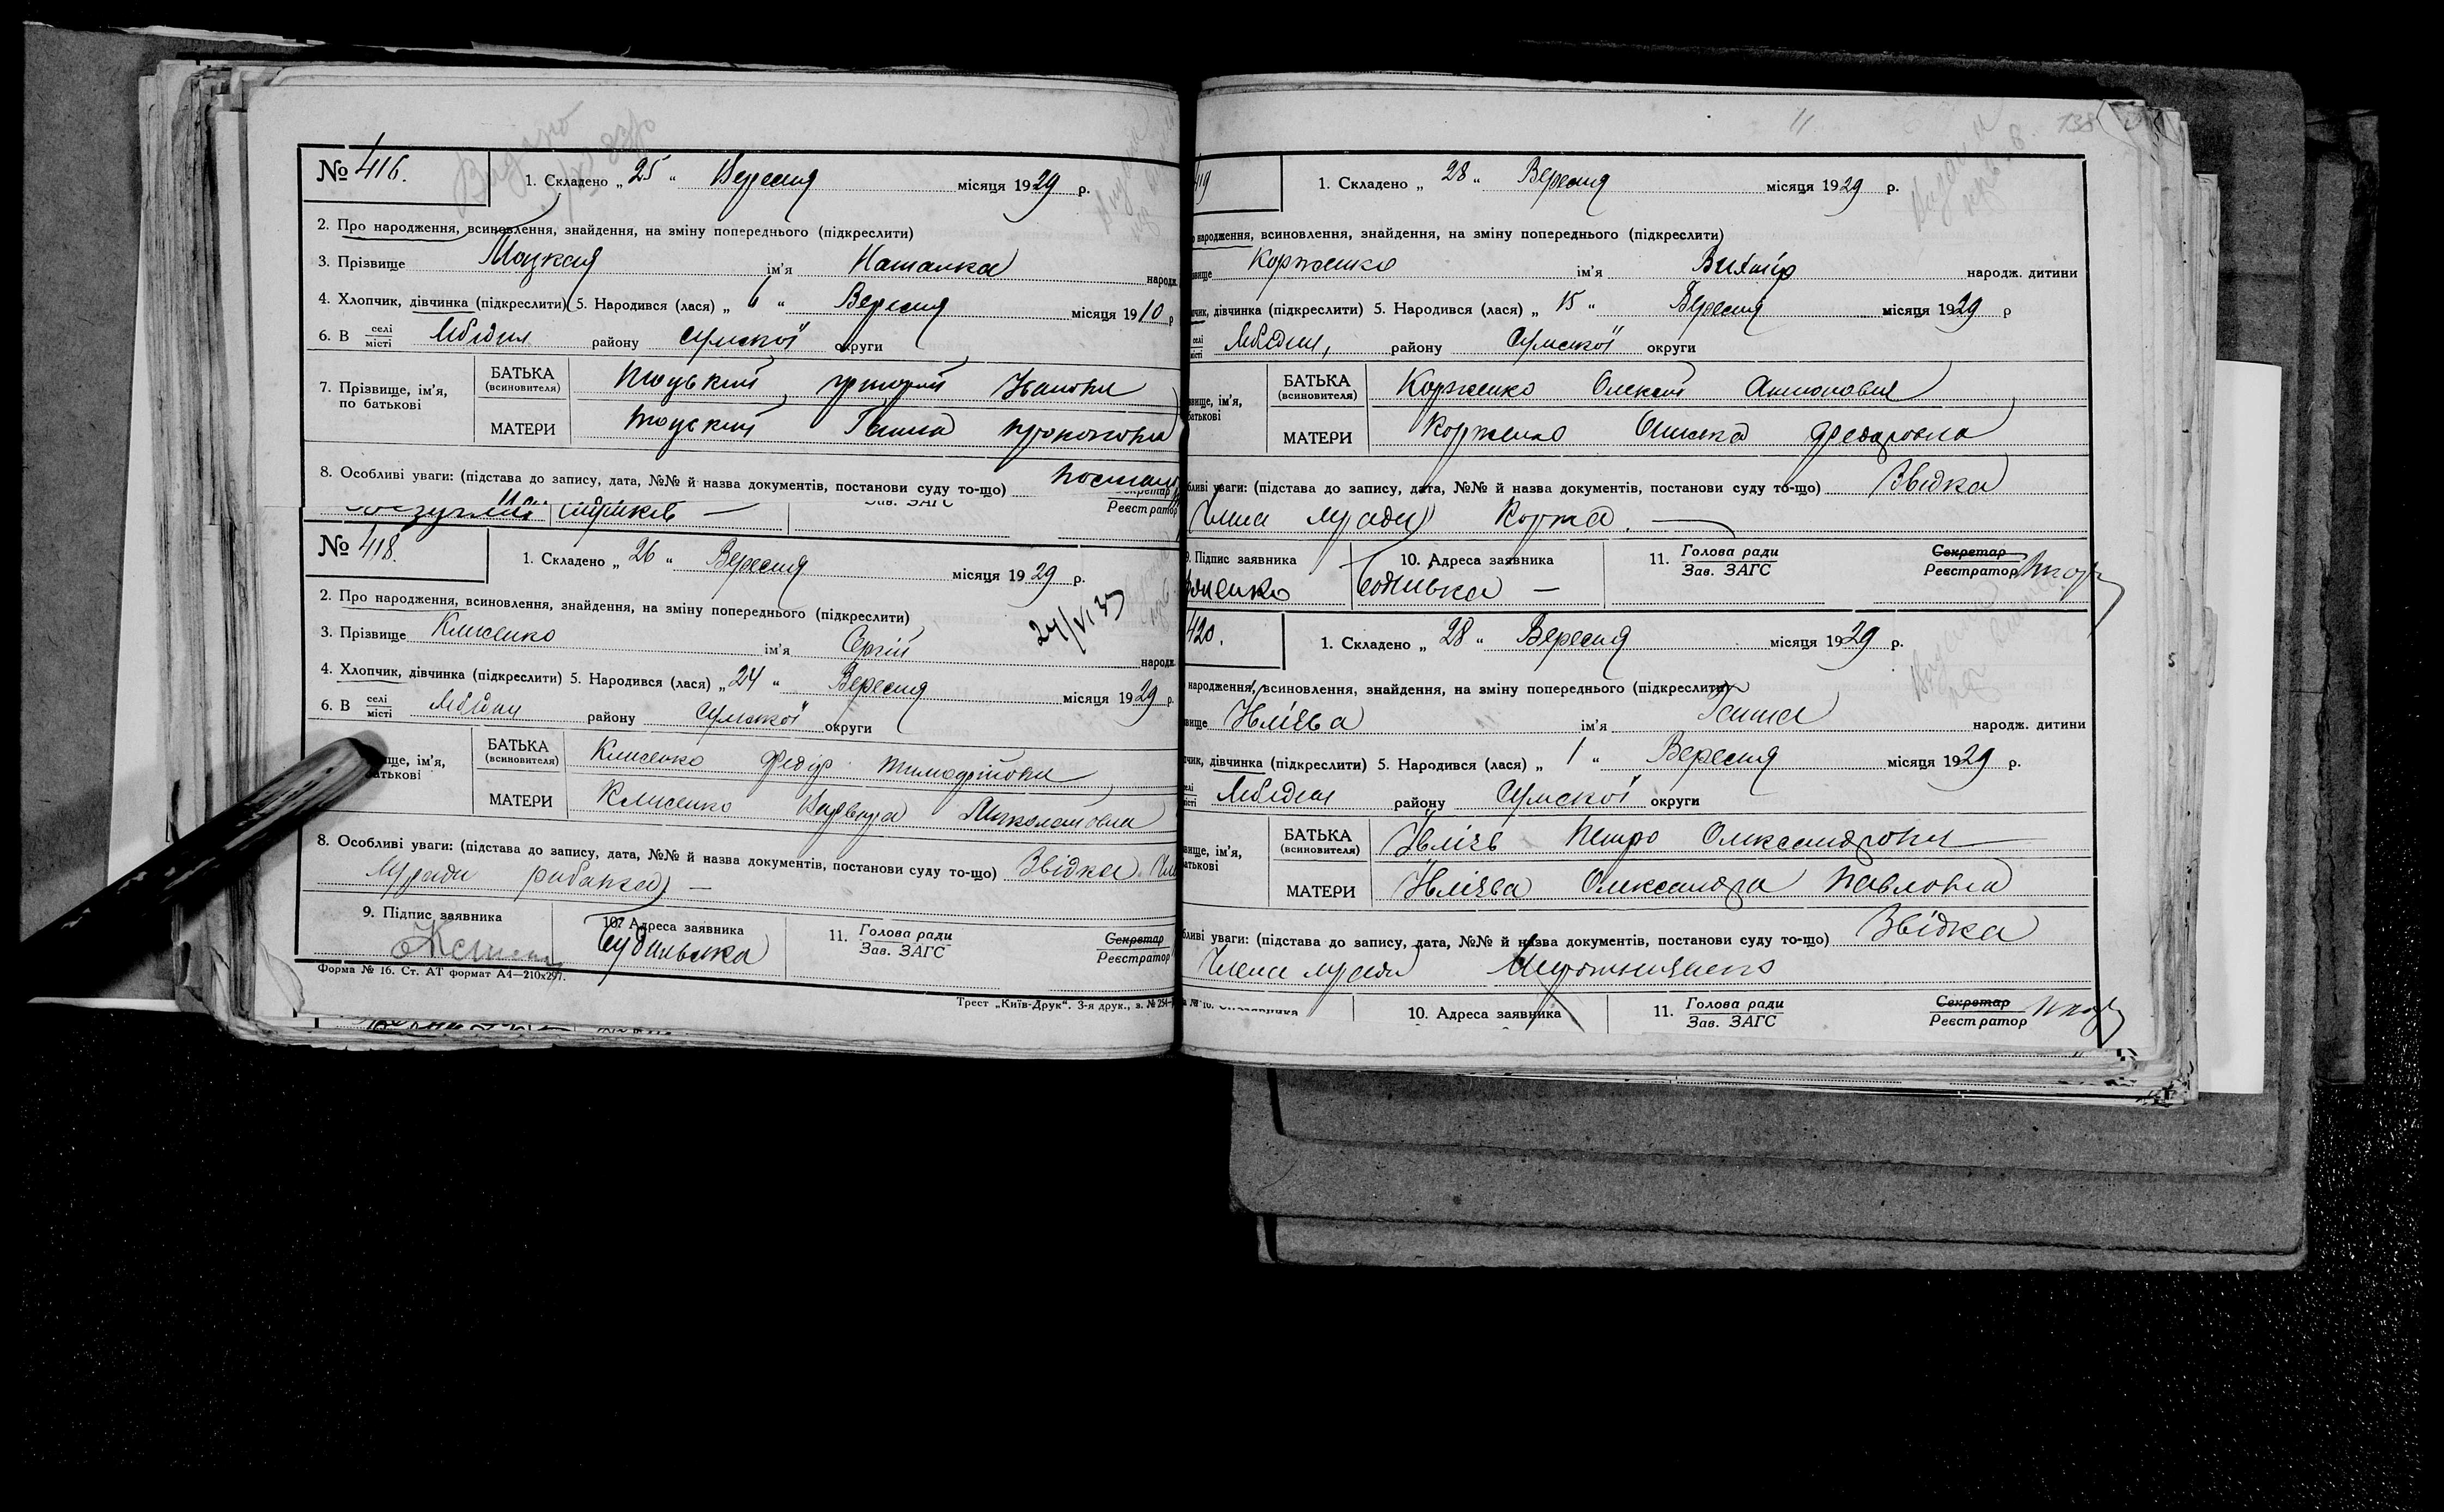 № 416.
1. Складено „ 25 “ Вересня місяця 1929 р.
2. Про народження, всиновлення, знайдення, на зміну попереднього (підкреслити)
3. Прізвище Моцкая ім'я Наталка народж
4. Хлопчик, дівчинка (підкреслити) 5. Народився (лася) „ 6 “ Вересня місяця 1910 р
6. В селі місті Лебідин району Сумської округи
7. Прізвище, ім'я, по батькові
БАТЬКА (всиновителя) Григорий Іванович
МАТЕРИ Ганна
8. Особливі уваги: (підстава до запису, дата, №№ й назва документів, постанови суду то-що)
Зав. ЗАГС
Реєстратор
№ 418.
1. Складено „ 26 “ Вересня місяця 1929 р.
2. Про народження, всиновлення, знайдення, на зміну попереднього (підкреслити)
24/VI 37
3. Прізвище Клисенко ім'я Сергій народж
4. Хлопчик, дівчинка (підкреслити) 5. Народився (лася) „ 24 “ Вересня місяця 1929 р.
6. В селі місті Лебідин району Сумської округи
ще, ім'я, батькові
БАТЬКА (всиновителя) Клисенко Федір Тимофійович
МАТЕРИ Клисенко Варвара Миколаївна
8. Особливі уваги: (підстава до запису, дата, №№ й назва документів, постанови суду то-що) Звідка
м/ради рибалка
9. Підпис заявника
10. Адреса заявника
11. Голова ради Зав. ЗАГС
Секретар Реєстратор
Форма № 16. Ст. АТ формат А4—210х297.
Трест „Київ-Друк“. 3-я друк., з. № 254-
138
419
1. Складено „ 28 “ Вересня місяця 1929 р.
народження, всиновлення, знайдення, на зміну попереднього (підкреслити)
вище Корженко ім'я народж. дитини
чик, дівчинка (підкреслити) 5. Народився (лася) „ 15 “ Вересня місяця 1929 р
селі місті Лебедин, району Сумської округи
вище, ім'я, батькові
БАТЬКА (всиновителя) Корженко Олексій Антонович
МАТЕРИ Корженко Федоровна
бливі уваги: (підстава до запису, дата, №№ й назва документів, постанови суду то-що) Звідка
Члена м/ради Коржа.
9. Підпис заявника
10. Адреса заявника
11. Голова ради Зав. ЗАГС
Секретар Реєстратор
420.
1. Складено „ 28 “ Вересня місяця 1929 р.
народження, всиновлення, знайдення, на зміну попереднього (підкреслити)
вище Івлієва ім'я Ганна народж. дитини
чик, дівчинка (підкреслити) 5. Народився (лася) „ 1 “ Вересня місяця 1929 р.
селі місті Лебедин району Сумської округи
вище, ім'я, батькові
БАТЬКА (всиновителя) Івлієв Петро Олександрович
МАТЕРИ Івлієва Олександра Павловна
бливі уваги: (підстава до запису, дата, №№ й назва документів, постанови суду то-що) Звідка
Члена м/ради Мирошниченко
10. Адреса заявника
11. Голова ради Зав. ЗАГС
Секретар Реєстратор